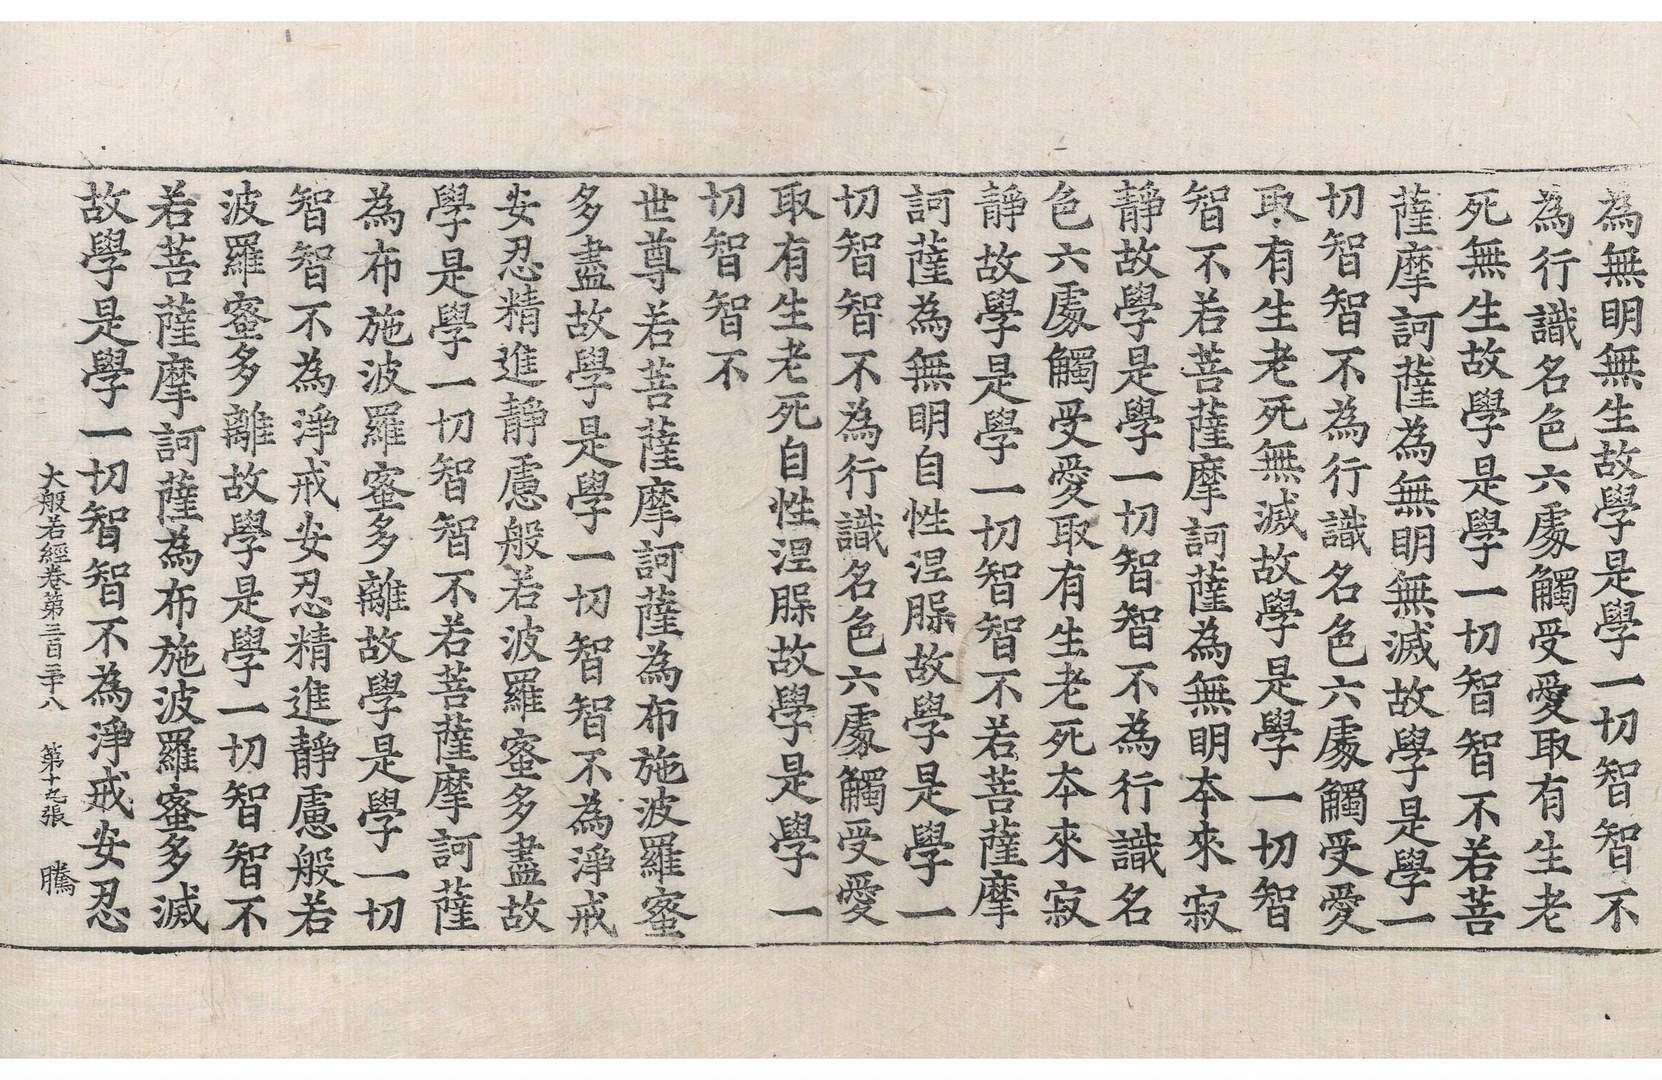 為無明無生故學是學一切智智不
為行識名色六處觸受愛取有生老
死無生故學是學一切智智不若菩
薩摩訶薩為無明無滅故學是學一
切智智不為行識名色六處觸受愛
取有生老死無滅故學是學一切智
智不若菩薩摩訶薩為無明本來寂
靜故學是學一切智智不為行識名
色六處觸受愛取有生老死本來寂
靜故學是學一切智智不若菩薩摩
訶薩為無明自性涅槃故學是學一
切智智不為行識名色六處觸受愛
取有生老死自性涅槃故學是學一
切智智不
世尊若菩薩摩訶薩為布施波羅蜜
多盡故學是學一切智智不為淨戒
安忍精進靜慮般若波羅蜜多盡故
學是學一切智智不若菩薩摩訶薩
為布施波羅蜜多離故學是學一切
智智不為淨戒安忍精進靜慮般若
波羅蜜多離故學是學一切智智不
若菩薩摩訶薩為布施波羅蜜多滅
故學是學一切智智不為淨戒安忍
大般若經卷第三百三十八 第十九張 騰